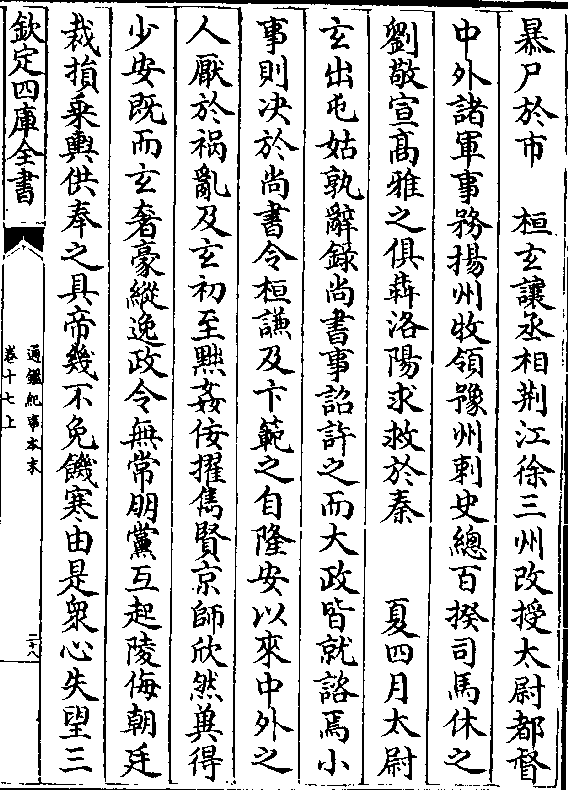 暴尸於市　桓玄讓丞相荆江徐三州改授太尉都督
中外諸軍事務揚州牧領豫州刺史總百揆司馬休之
劉敬宣髙雅之俱奔洛陽求救於秦　夏四月太尉
玄出屯姑孰辭録尚書事詔許之而大政皆就諮焉小
事則决於尚書令桓謙及卞範之自隆安以來中外之
人厭於禍亂及玄初至黜姦佞擢雋賢京師欣然冀得
少安既而玄奢豪縱逸政令無常朋黨互起陵侮朝廷
裁損乗輿供奉之具帝幾不免饑寒由是衆心失望三
欽定四庫全書
通鑑紀事本末
卷十七上
二十八